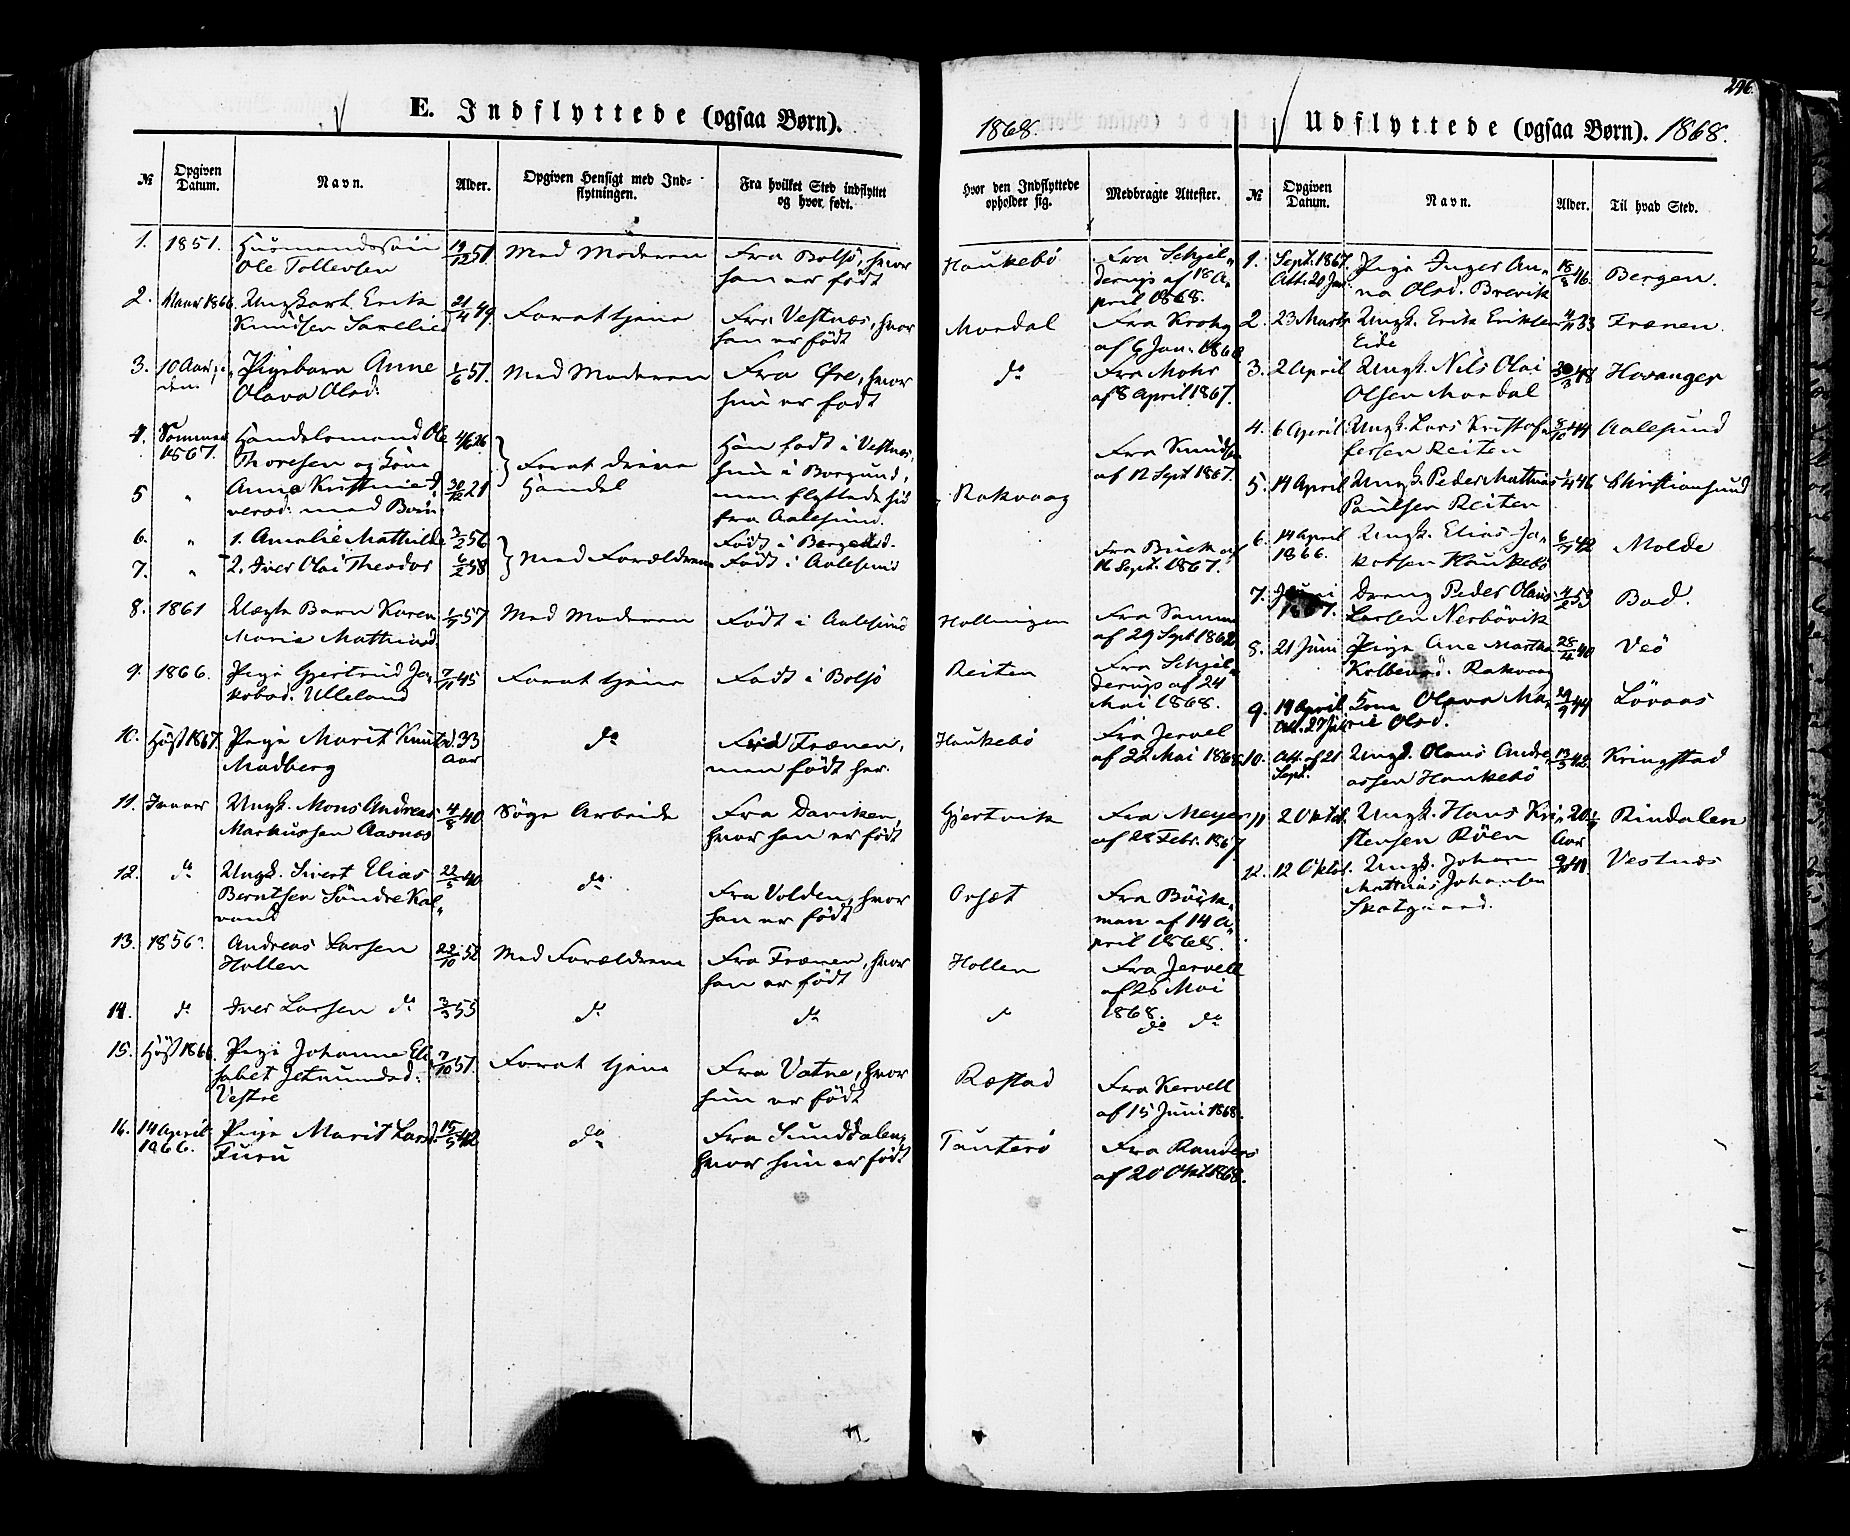 246.
E. Indflyttede (ogsaa Børn).
1868.
Udflyttede (ogsaa Børn). 1868.
№
Opgiven Datum.
Navn.
Alder.
Opgiven Hensigt med Ind-
flytningen.
Fra hvilket Sted indflyttet
og hvor født.
Hvor den Indflyttede
opholder sig.
Medbragte Attester.
1. 1851. Huusmandssøn 19/12 51 Med Moderen Fra Bolsö, hvor Haukebö Fra Schjel-
Ole Tollevsen han er födt derup af 18 A-
pril 1868.
2. 1866. Ungkarl Erik 21/4 49 For at tjene Fra Vestnæs, hvor Mordal Fra Krohg
Knudsen han er födt af 6 Jan. 1868
3. 10 Aar Pigebarn Anne 1/6 57. Med Moderen Fra Øre, hvor do Fra Mohr
Olava Olsd: hun er födt af 8 April 1867.
4. Sommer Handelsmand Ole 26 For at drive Han födt i Vestnæs, Fra Knudsen
1867. Thoresen og Kone Handel hun i Borgund, af 12 Sept 1867.
5 " Anne 30/12 21 men flyttede hid Rakvaag
med Börn: fra Aalesund.
6. " 1. Amalie Mathilde 3/2 56 Med Forældrene Födt i Fra Buck af
7. " 2. Iver Olai Theodor 6/2 58 Födt i Aalesund 16 Sept. 1867.
8. 1861 Barn Karen 57 Med Moderen Födt i Aalesund Hollingen Fra
Marie Mathisd. af 29 Sept 1862
9. 1866. Pige Gjertrud Ja- 7/11 45 For at tjene Födt i Bolsö Reiten Fra Schjel-
kobsd. Ulleland derup af 24
Mai 1868.
10. Höst 1867. Pige Marit Knutsd. 33 do Fra Frænen, Haukebö Fra Jervel
Madberg Aar men födt her. af 22 Mai 1868
11. Januar Ungk. Mons Andreas 4/8 40 Søge Arbeide Fra Daviken, Gjertvik Fra Meyer
Markussen Aarnes hvor han er födt af 28 Febr. 1867
12. do Ungk. Sivert Elias 22/5 40 do Fra Volden, hvor Orset Fra Böck-
Berntsen Söndre Kal- han er födt man af 14 A-
vand pril 1868.
13. 1856. Andreas Larsen 22/10 52 Med Forældrene Fra Frænen, hvor Hollen Fra Jervell
Hollen han er födt af 26 Mai
1868.
14. do Iver Larsen do 3/3 55 do do do do do
15. Höst 1866. Pige Johanne Eli- 7/10 51. For at tjene Fra Vatne, hvor Ræstad Fra Kervell
sabet Jetmundsd. hun er födt af 15 Juni 1868.
Vestre
16. 14 April Pige Marit Larsd. 15/5 42 do Fra Sunddalen, Tauterö Fra Randers
1866. Furu hvor hun er födt af 20 Okt 1868.
№
Opgiven Datum.
Navn.
Alder.
Til hvad Sted.
1. Sept. 1867. Pige Inger An- 18/8 46. Bergen.
Att. 20 Jan. na Olsd. Brevik
2. 23 Marts Ungk. Erik Eriksen 33 Frænen.
Eide
3. 2 April Ungk. Nils Olai 30/3 48 Havanger
Olsen Mordal
4. 6 April Ungk. Lars Kristof- 5/10 44 Aalesund
fersen Reiten
5. 14 April Ungk. Peder Mathias 46 Christiansund
Paulsen Reiten
6. 14 April Ungk. Elias Ja- 42 Molde
1866. kobsen Haukebö
7. Juni Dreng Peder Olaus 4/2 53 Bod.
1867. Larsen Nerbövik
8. 21 Juni Pige Ane Martha 28/4 40 Veö
Kolbensd. Rakvaag
9. 14 April Kone Olava Ma- 29/9 44 Lövaas
Att. 27 Juli rie Olsd.
10. Att. af 21 Ungk. Olaus Andre- 13/5 42 Kringstad
Sept. assen Haukebö
11. 2 Oktob. Ungk. Hans Kri- 20 Rindalen
stensen Röen Aar
12. 12 Oktob. Ungk. Johan 9/10 48 Vestnæs
Mathias Johansen
Skotgaard.